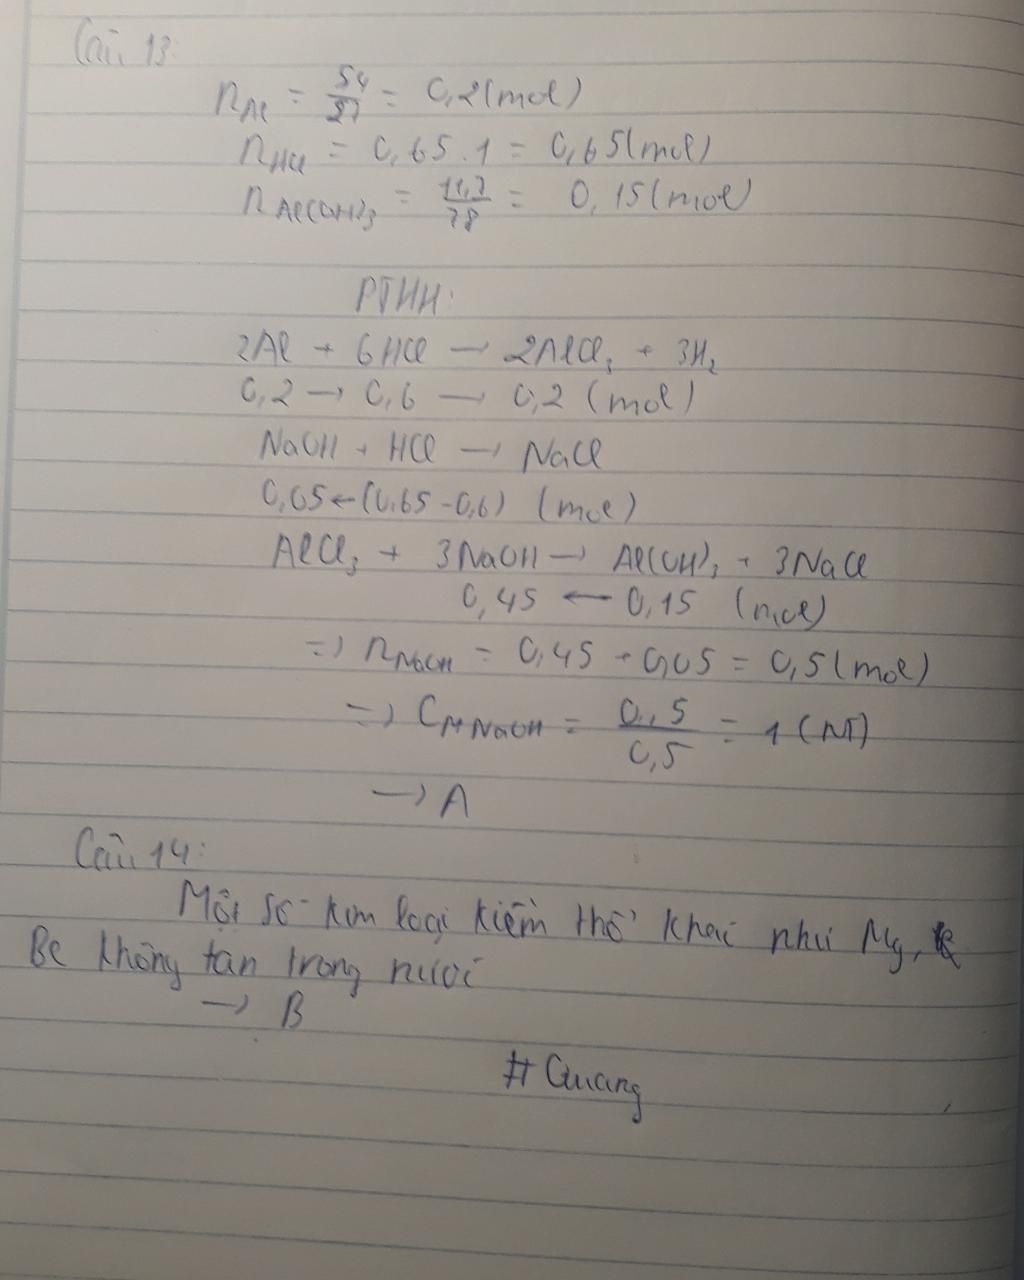 Câu 13:
n_Al = 54/27 = 0,2 (mol)
n_HCl = 0,65 . 1 = 0,65 (mol)
n_Al(OH)₃ = 11,7/78 = 0,15 (mol)
PTHH:
2Al + 6HCl → 2AlCl₃ + 3H₂
0,2 → 0,6 → 0,2 (mol)
NaOH + HCl → NaCl
0,05 ← (0,65 - 0,6) (mol)
AlCl₃ + 3NaOH → Al(OH)₃ + 3NaCl
0,45 ← 0,15 (mol)
=> n_NaOH = 0,45 + 0,05 = 0,5 (mol)
=> C_M NaOH = 0,5/0,5 = 1 (M)
→ A
Câu 14:
Một số kim loại kiềm thổ khác như Mg,
Be không tan trong nước
→ B
# Quang